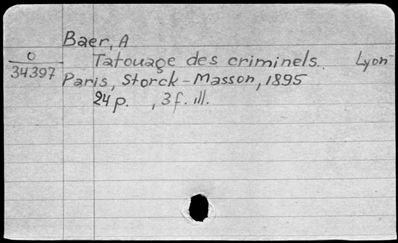 Baer, A
O
34397
Tatouage des criminels.. Lyon-
Paris, Storck-Masson, 1895
24 p. , 3 f. ill.